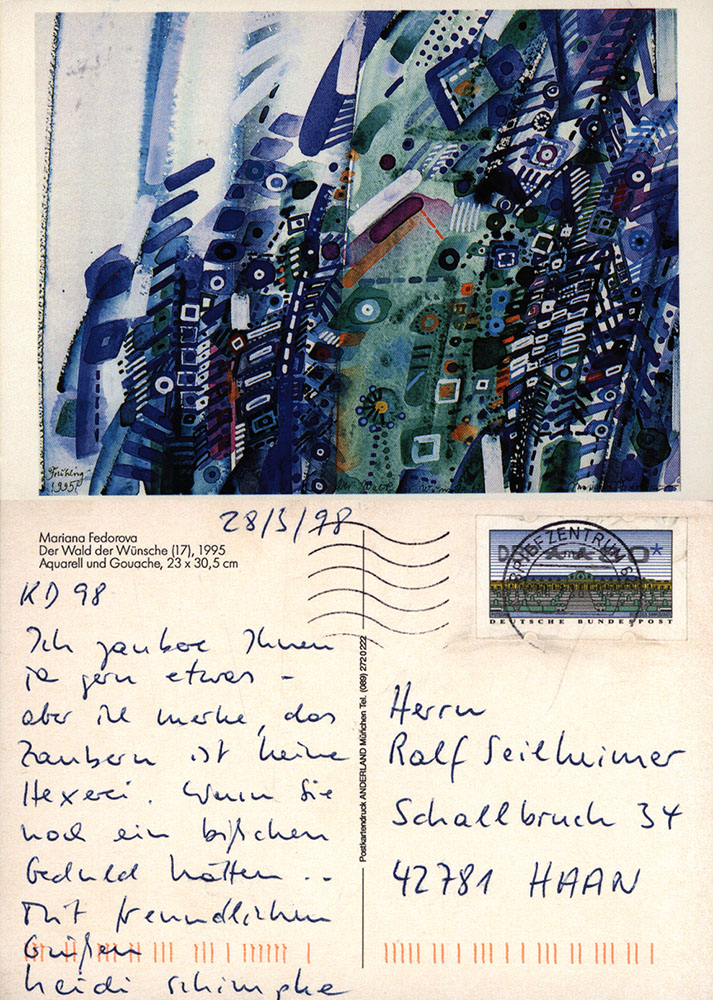 Frühling
1995
Mariana Fedorova
Der Wald der Wünsche (17), 1995
Aquarell und Gouache, 23 x 30,5 cm
28/3/98
KD 98
Ich zaubere Ihnen
ja gern etwas –
aber ich merke, das
Zaubern ist keine
Hexerei. Wenn Sie
noch ein bißchen
Geduld hätten ..
Mit freundlichen
Grüßen
heidi schimpke
Postkartendruck ANDERLAND München Tel. (089) 272 0 222
BRIEFZENTRUM
DEUTSCHE BUNDESPOST
Herrn
Ralf Seilheimer
Schallbruch 34
42781 HAAN